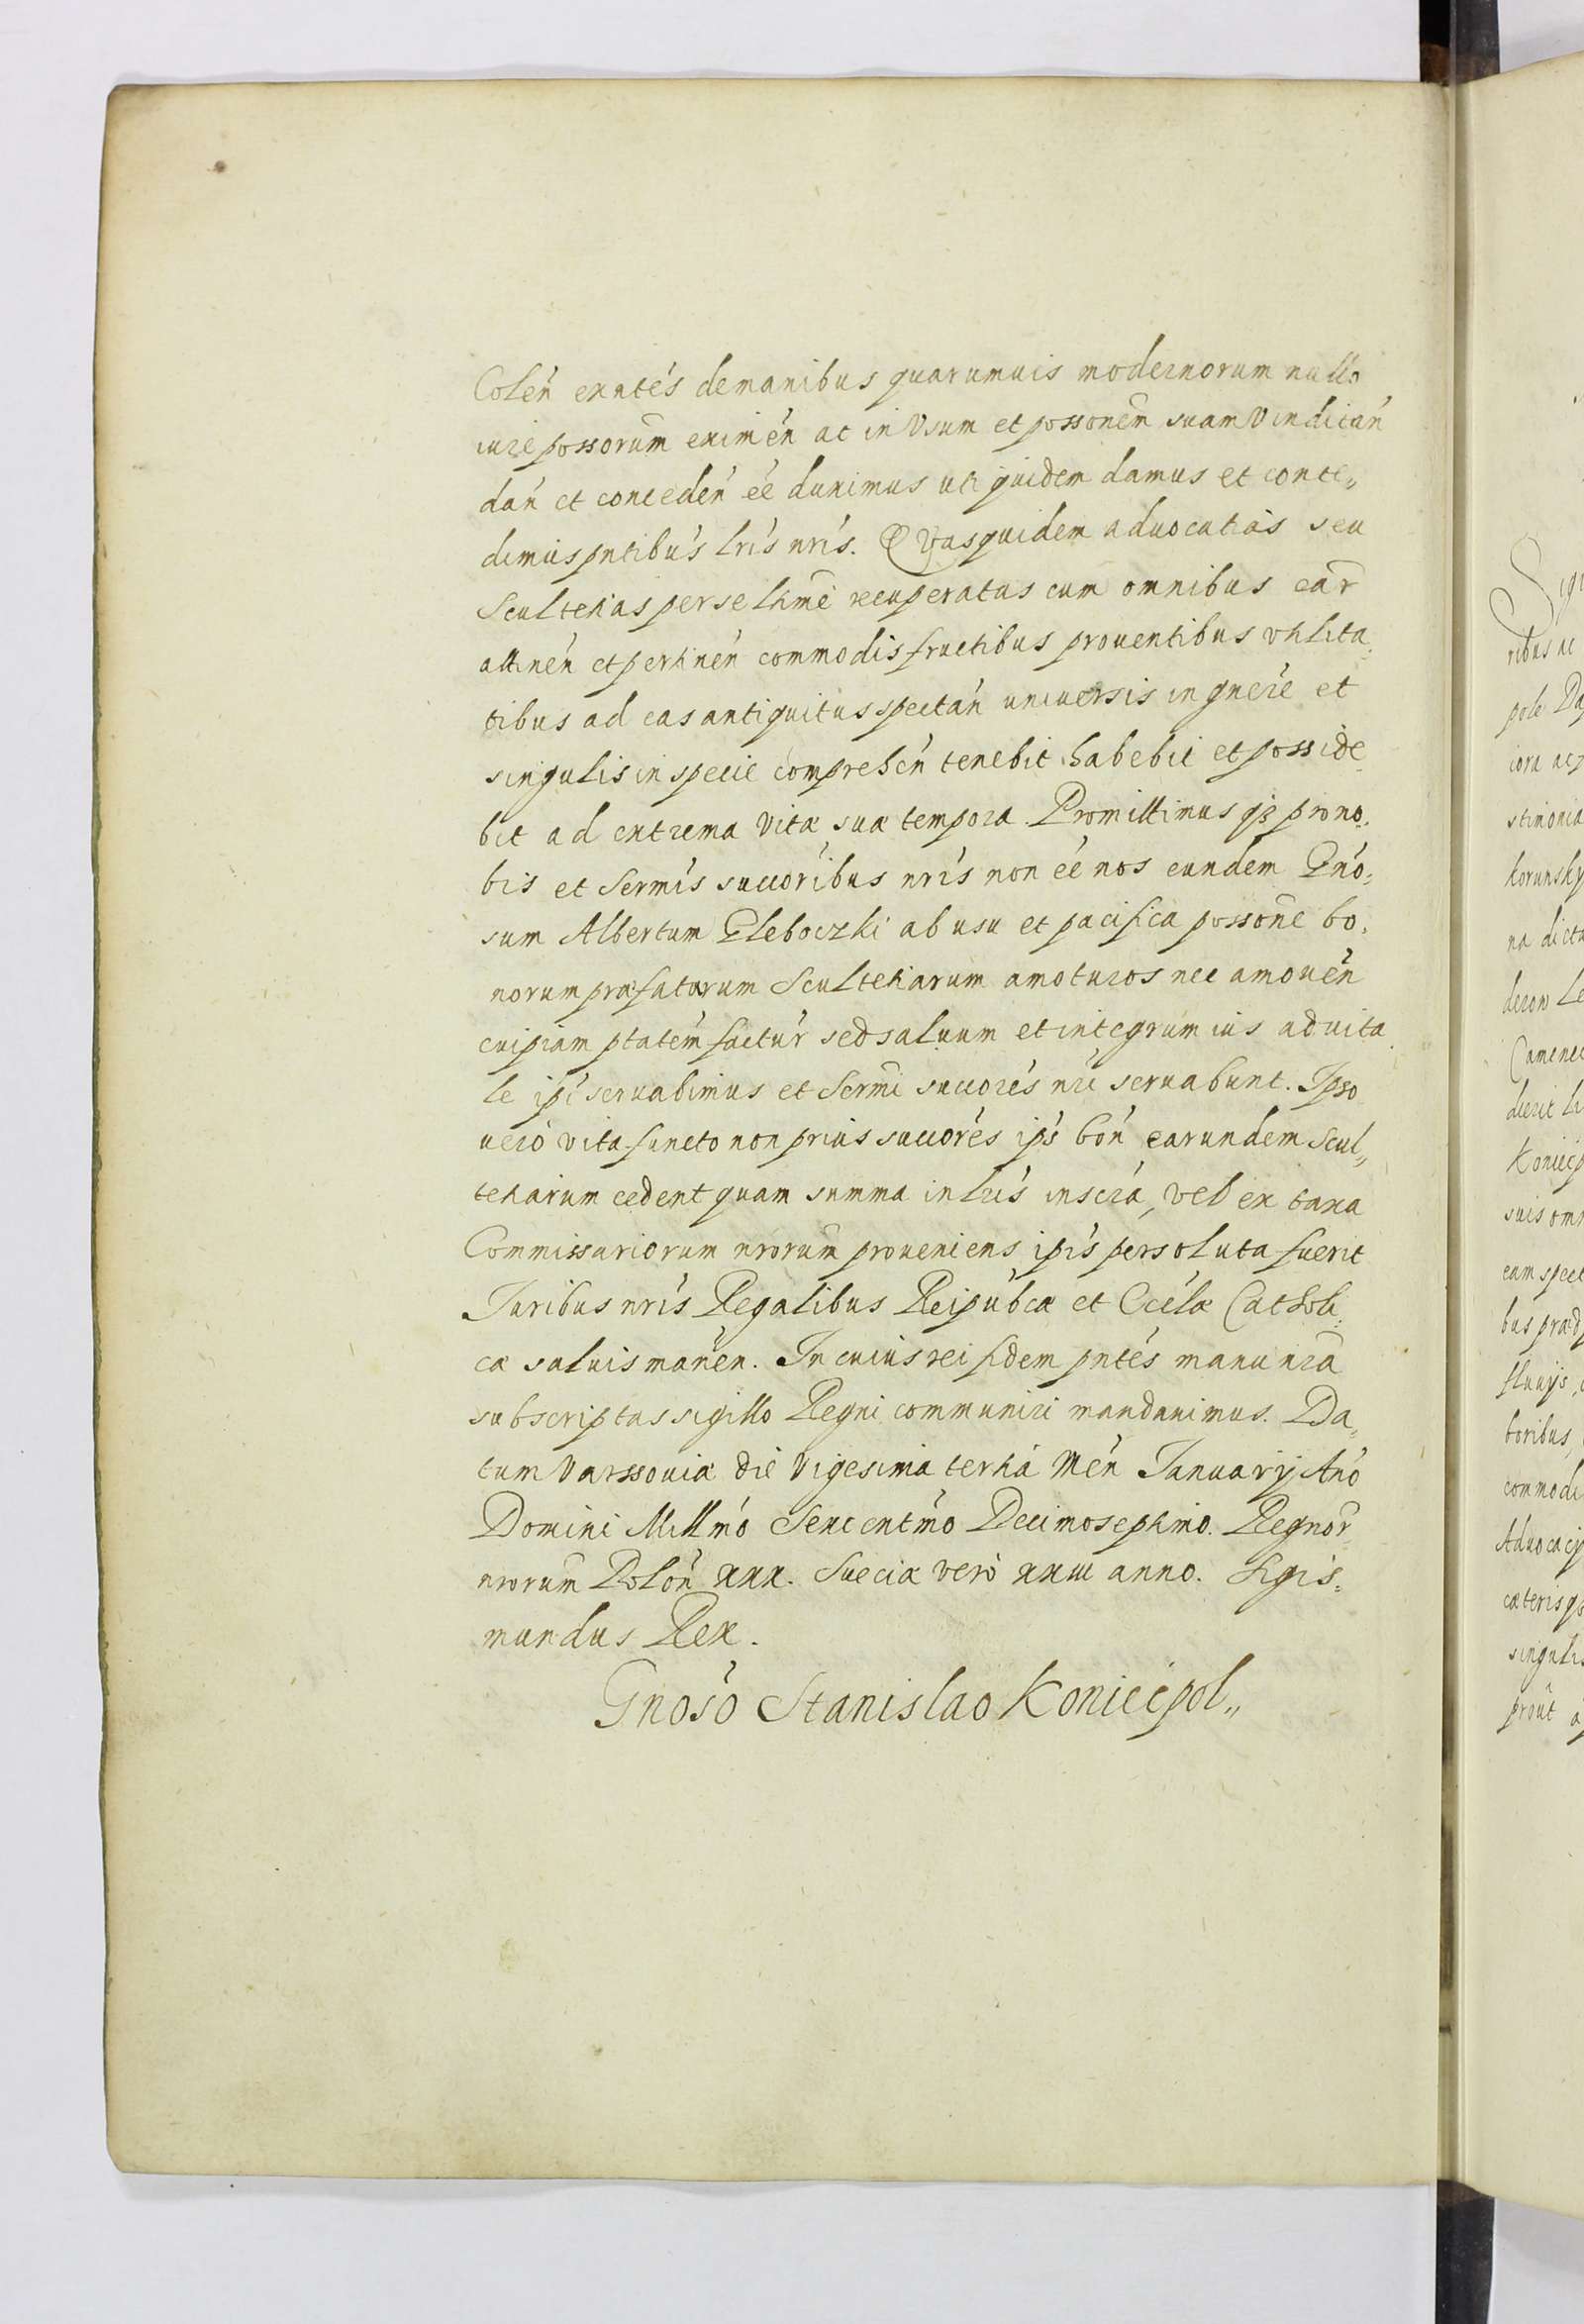 Colen̄ exn̄tes de manibus quarumuis modernorum nullo
iure possorum eximen̄ ac in Vsum et possonem suam Vindican̄
dan̄ et conceden̄ ee̅ duximus uti quidem damus et conce„
dimus pn̄tibus lr̄is nr̄is. Quas quidem aduocatias seu
Scultetias per se l̄time recuperatas cum omnibus ear̄
attinen̄ et pertinen̄ commodis fructibus prouentibus vtilita
tibus ad eas antiquitus spectan̄ uniuersis in gn̄ere et
singulis in specie comprehen̄ tenebit habebit et posside
bit ad extrema Vitæ suæ tempora. Promittimus qȝ pro no„
bis et Serm̄is succoribus nr̄is non ee̅ nos eundem Gn̄o„
sum Albertum Gleboczki ab usu et pacifica possone bo„
norum præfatarum Scultetiarum amoturos nec amouen̄
cuipiam ptatem factur̄ sed saluum et integrum ius aduita
le ip̄i seruabimus et Serm̄i succores nr̄i seruabunt. Ipso
uero vita functo non prius succores ip̄s bon̄ earundem Scul„
tetiarum cedent quam summa in lr̄is inscra, vel ex taxa
Commissariorum nrorum proueniens ip̄is persoluta fuerit
Juribus nr̄is Regalibus Reipub̄cæ et Eccl̄æ Catholi„
cæ saluis manen̄. In cuius rei fidem pn̄tes manu nr̄a
subscriptas sigillo Regni communiri mandauimus. Da„
tum Varssouiæ die Vigesima tertia Men̄ Januarij An̄o
Domini Mill̄mo Sexcentm̄o Decimoseptimo. Regnor̄
nrorum Polon̄ xxx. Sueciæ vero xxiii anno. Sigis„
mundus Rex.
Gnoso Stanislao Koniecpol„